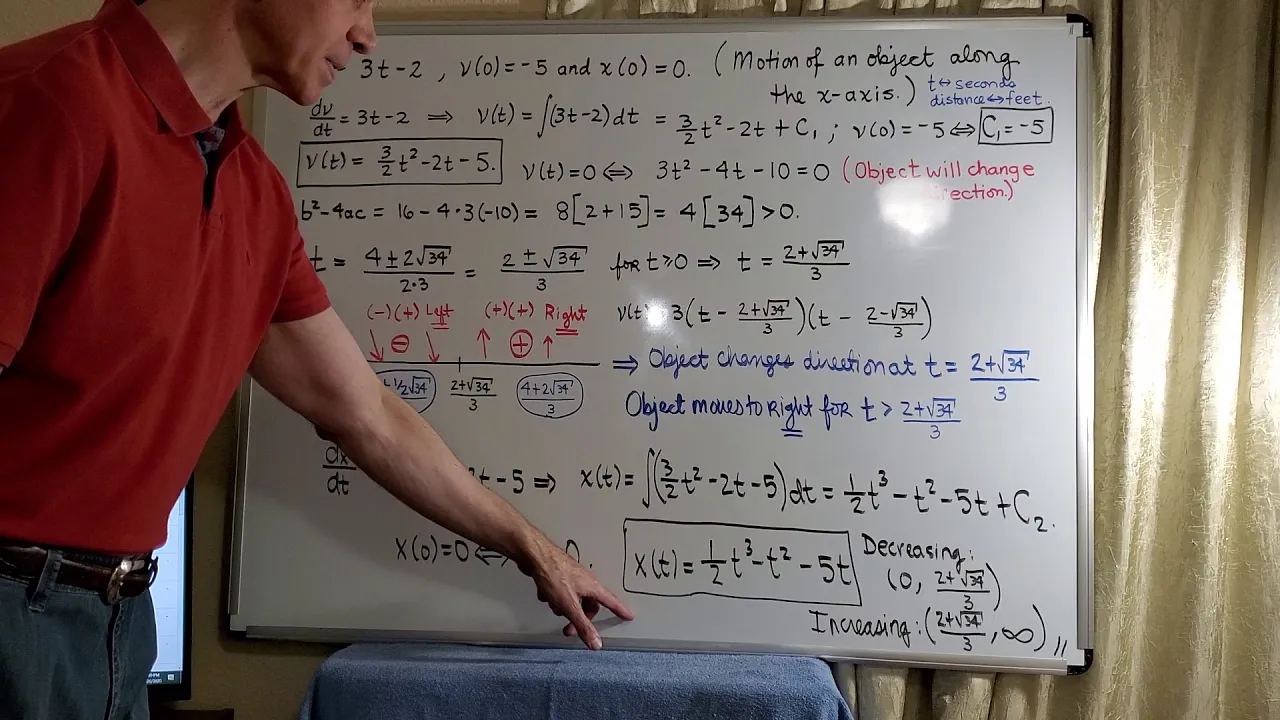 3t-2, v(0)=-5 and x(0)=0. (Motion of an object along
the x-axis.) t↔seconds
distance↔feet.
dv/dt = 3t-2 ⇒ v(t) = ∫(3t-2)dt = 3/2 t² - 2t + C₁ ; v(0) = -5 ⇔ C₁ = -5
v(t) = 3/2 t² - 2t - 5. v(t)=0 ⇔ 3t² - 4t - 10 = 0 (Object will change
direction.)
b²-4ac = 16 - 4·3(-10) = 8[2+15] = 4[34] > 0.
t = (4±2√34)/(2·3) = (2±√34)/3 for t≥0 ⇒ t = (2+√34)/3
(-)(+) Left (+)(+) Right v(t) 3(t - (2+√34)/3)(t - (2-√34)/3)
↓ ⊖ ↓ ↑ ⊕ ↑ ⇒ Object changes direction at t = (2+√34)/3
1/2√34 (2+√34)/3 (4+2√34)/3 Object moves to Right for t > (2+√34)/3
dx/dt t - 5 ⇒ x(t) = ∫(3/2 t² - 2t - 5)dt = 1/2 t³ - t² - 5t + C₂.
x(0)=0 ⇔ 0. x(t) = 1/2 t³ - t² - 5t Decreasing:
(0, (2+√34)/3)
Increasing: ((2+√34)/3, ∞) //